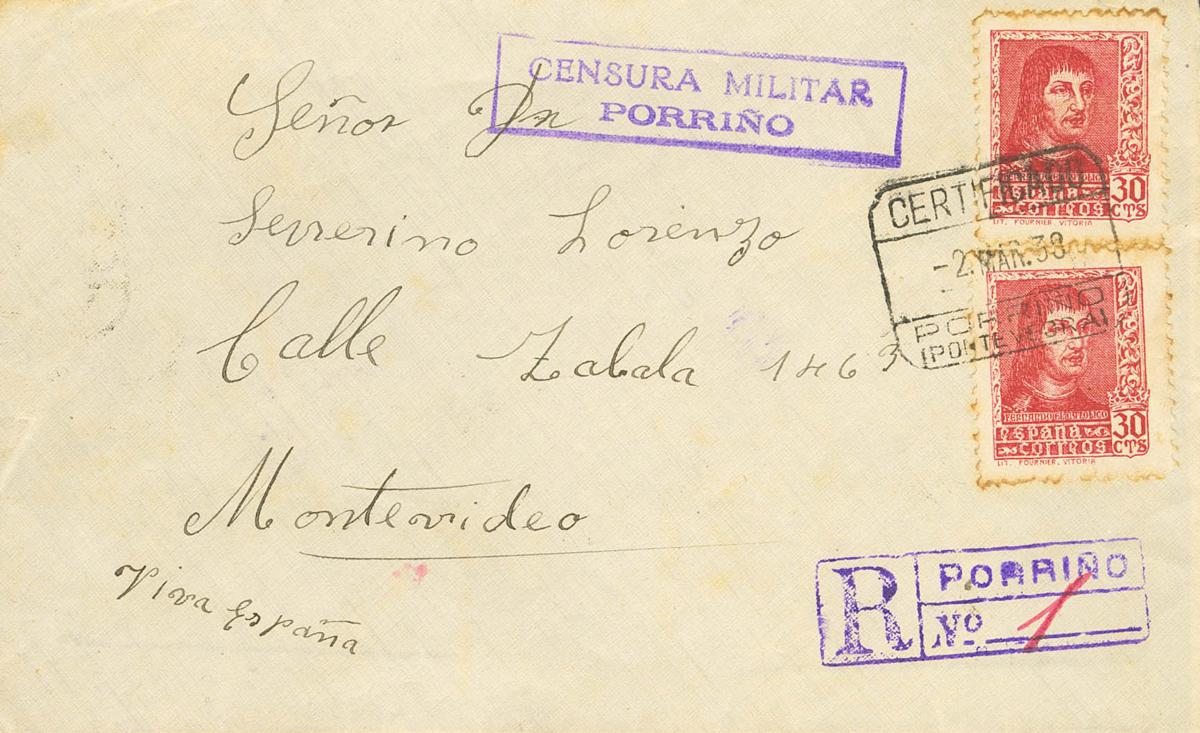 CENSURA MILITAR
PORRIÑO
Señor Dn
Severino Lorenzo
Calle Zabala 1463
Montevideo
Viva España
ESPAÑA
CORREOS
30
CTS
LIT. FOURNIER. VITORIA
CERTIFICADO
-2.MAR.38
PORRIÑO
(PONTEVEDRA)
FERNANDO EL CATOLICO
ESPAÑA
CORREOS
30
CTS
LIT. FOURNIER. VITORIA
R PORRIÑO
Nº 1